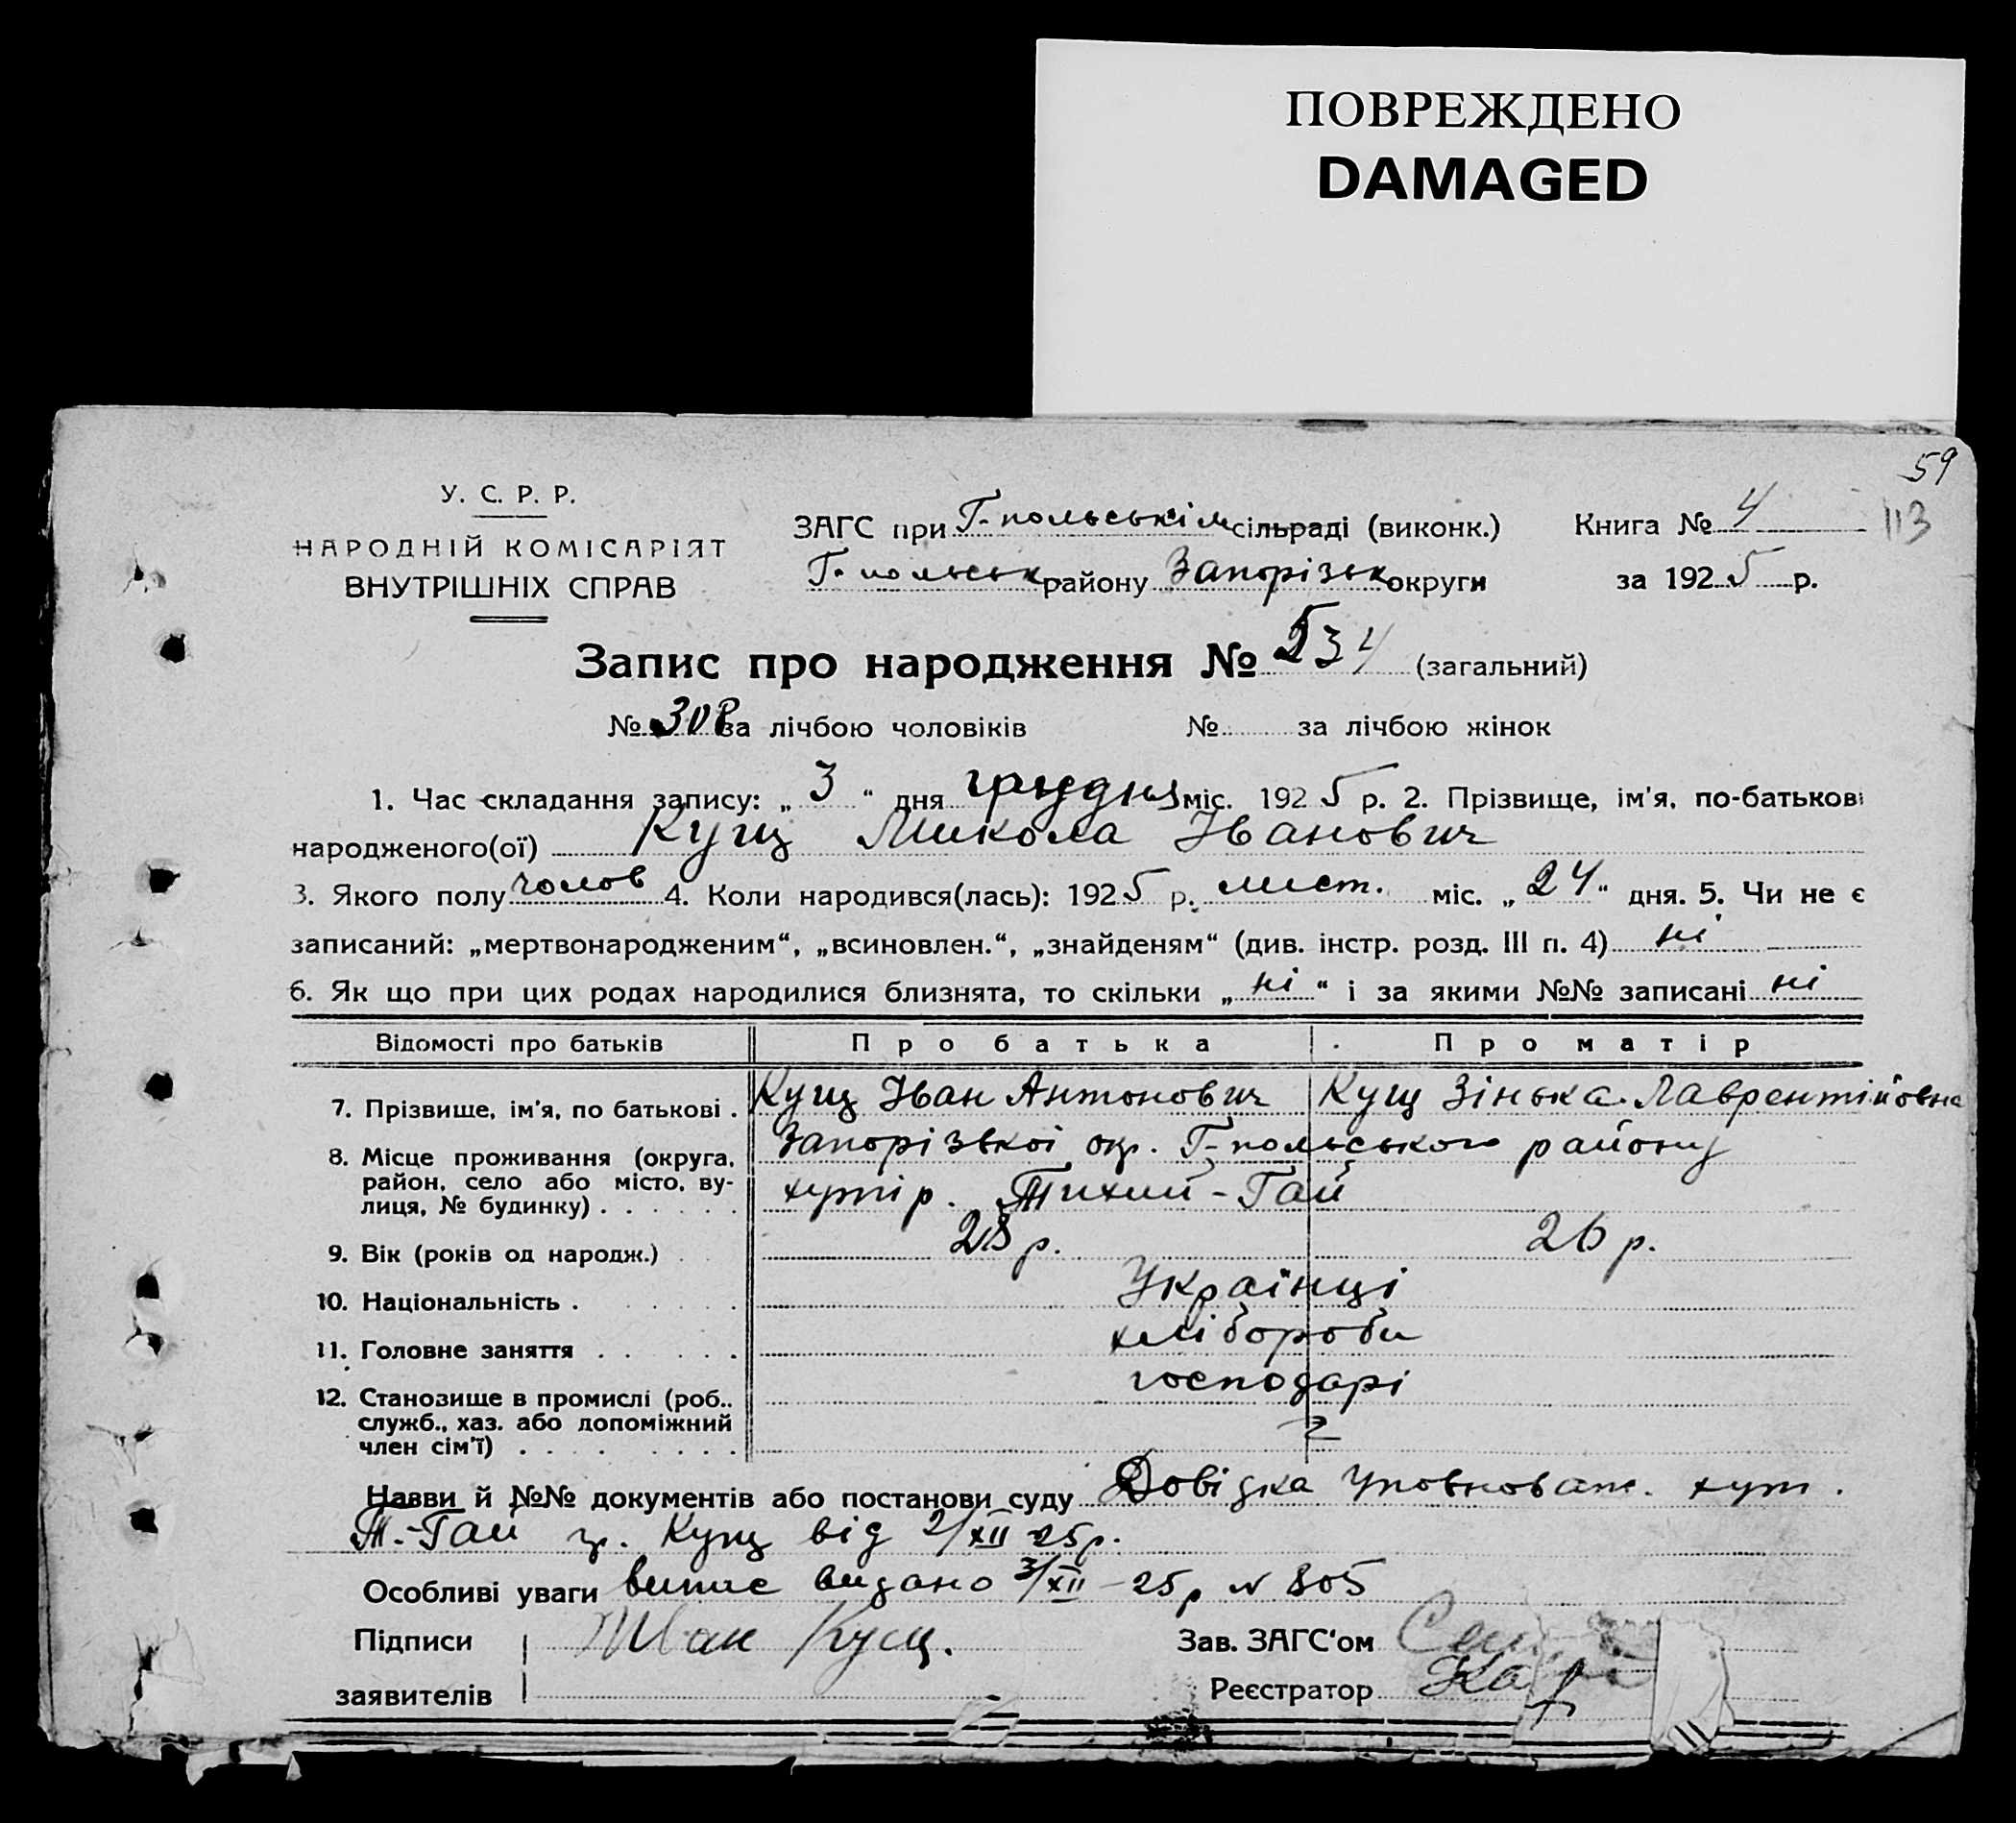 ПОВРЕЖДЕНО
DAMAGED
59
113
У. С. Р. Р.
НАРОДНІЙ КОМІСАРІЯТ
ВНУТРІШНІХ СПРАВ
ЗАГС при Г-польськім сільраді (виконк.) Книга № 4
Г-польськ району Запорізьк округи за 1925 р.
Запис про народження № 534 (загальний)
№ 308 за лічбою чоловіків № за лічбою жінок
1. Час складання запису: „3“ дня грудня міс. 1925 р. 2. Прізвище, ім'я, по-батькові
народженого(ої) Кущ Микола Іванович
3. Якого полу чолов 4. Коли народився(лась): 1925 р. лист. міс. „24“ дня. 5. Чи не є
записаний: „мертвонародженим“, „всиновлен.“, „знайденям“ (див. інстр. розд. III п. 4) ні
6. Як що при цих родах народилися близнята, то скільки „ні“ і за якими №№ записані ні
Відомості про батьків Про батька Про матір
7. Прізвище, ім'я, по батькові . Кущ Іван Антонович Кущ Зінька Лаврентійовна
8. Місце проживання (округа, Запорізької окр. Г-польського району
район, село або місто, ву-
лиця, № будинку) . . . . . . хутір. Тихий-Гай
9. Вік (років од народж.) 28 р. 26 р.
10. Національність . Українці
11. Головне заняття . . хлібороби
12. Становище в промислі (роб.. господарі
служб., хаз. або допоміжний
член сім'ї) . . . .
Назви й №№ документів або постанови суду Довідка Уповноваж. хут.
Т.-Гай гр. Кущ від 2/XII 25р.
Особливі уваги випис видано 3/XII-25р № 805
Підписи Иван Кущ. Зав. ЗАГС'ом
заявителів Реєстратор